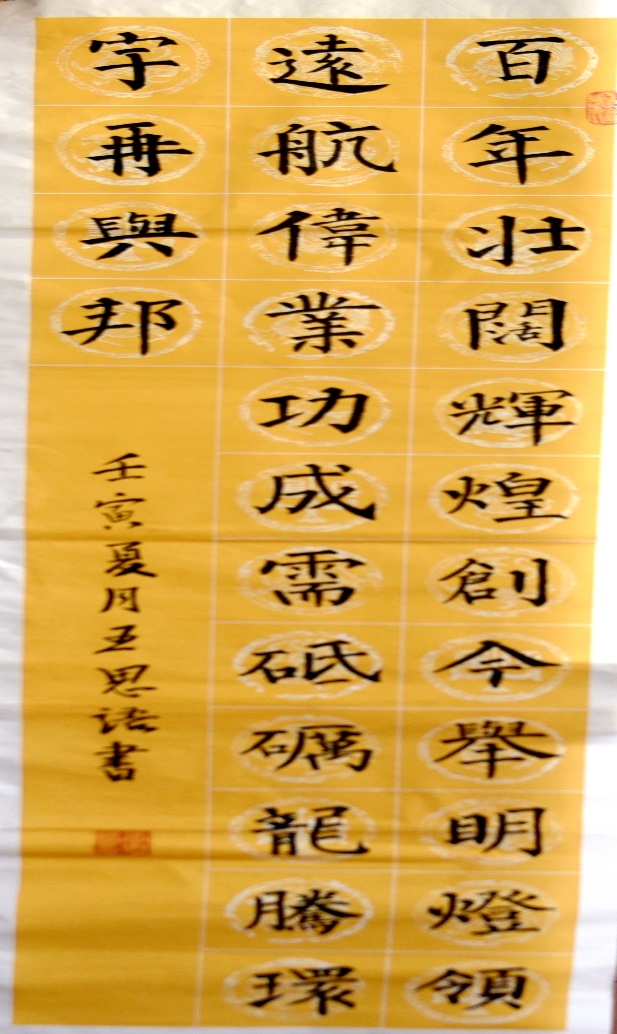 百年壮闊輝煌創今舉明燈領
遠航偉業功成需砥礪龍騰環
宇再興邦
壬寅夏月王思语書